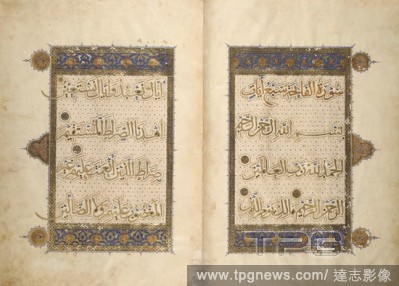 سورة الفاتحة سبع آيات
بسم الله الرحمن الرحيم
الحمد لله رب العالمين
الرحمن الرحيم ملك يوم الدين
إياك نعبد وإياك نستعين
اهدنا الصراط المستقيم
صراط الذين أنعمت عليهم غير
المغضوب عليهم ولا الضالين
TPG
www.tpgnews.com/ 達志影像